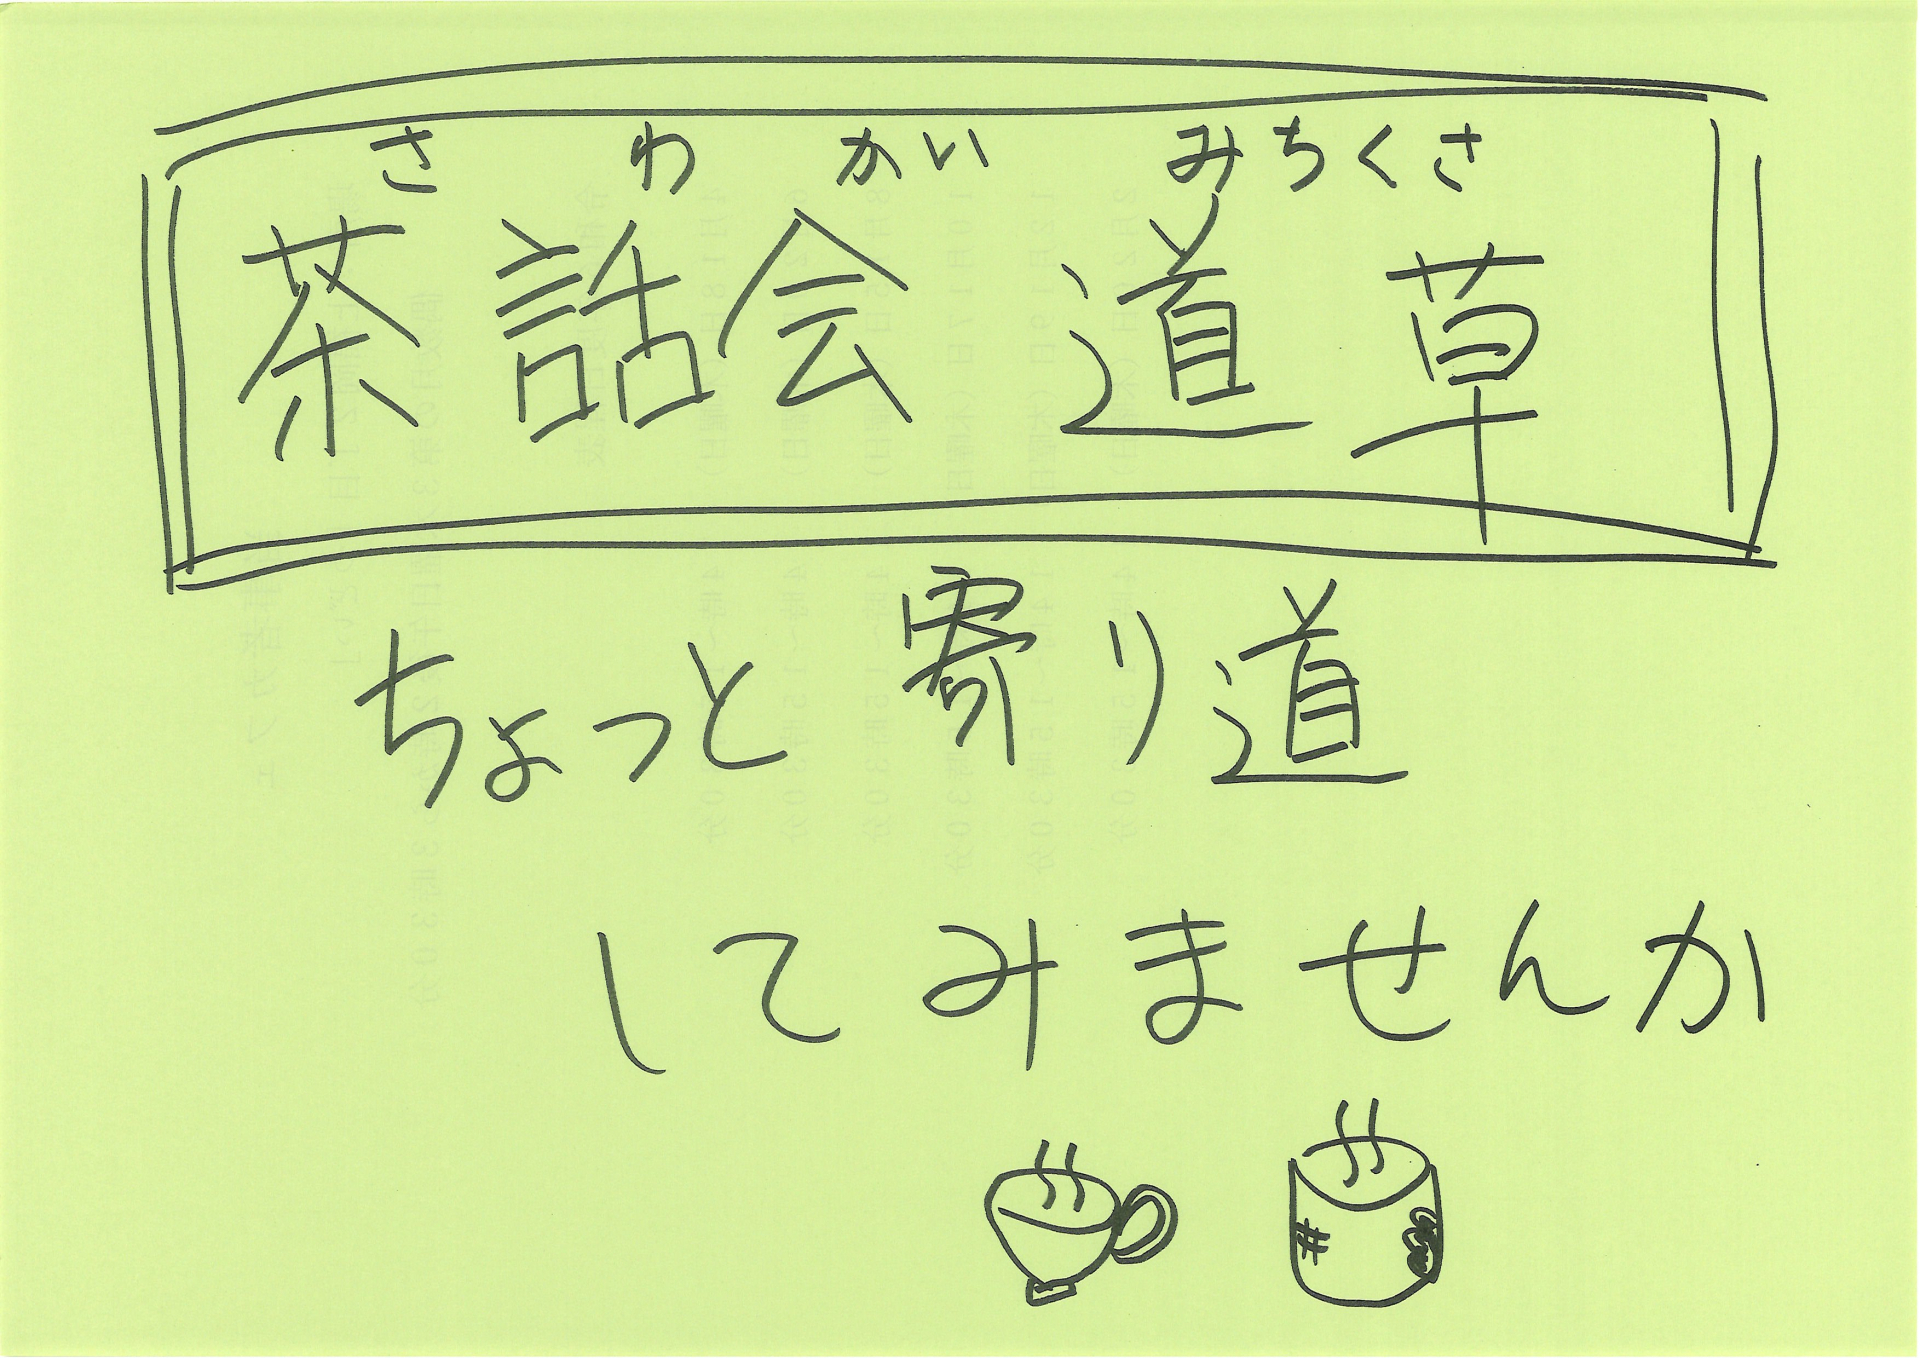 さわかい みちくさ
茶話会 道草
ちょっと寄り道
してみませんか